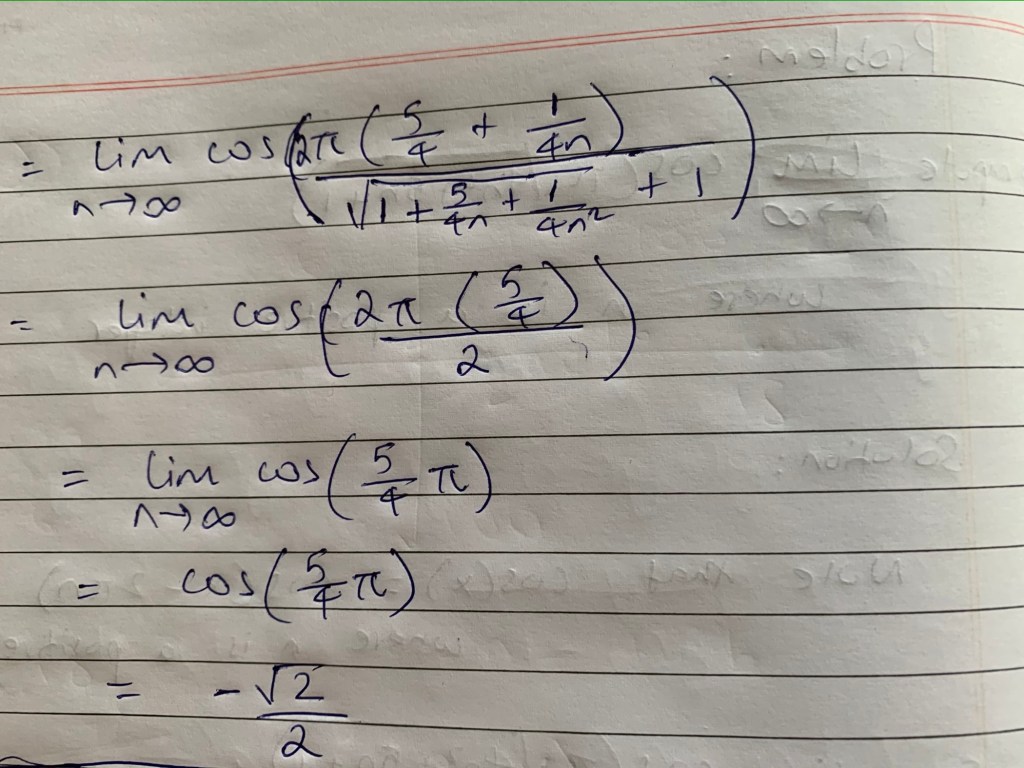 = lim n→∞ cos(2π(5/4 + 1/4n) / √(1 + 5/4n + 1/4n²) + 1)
= lim n→∞ cos(2π(5/4) / 2)
= lim n→∞ cos(5/4 π)
= cos(5/4 π)
= -√2/2